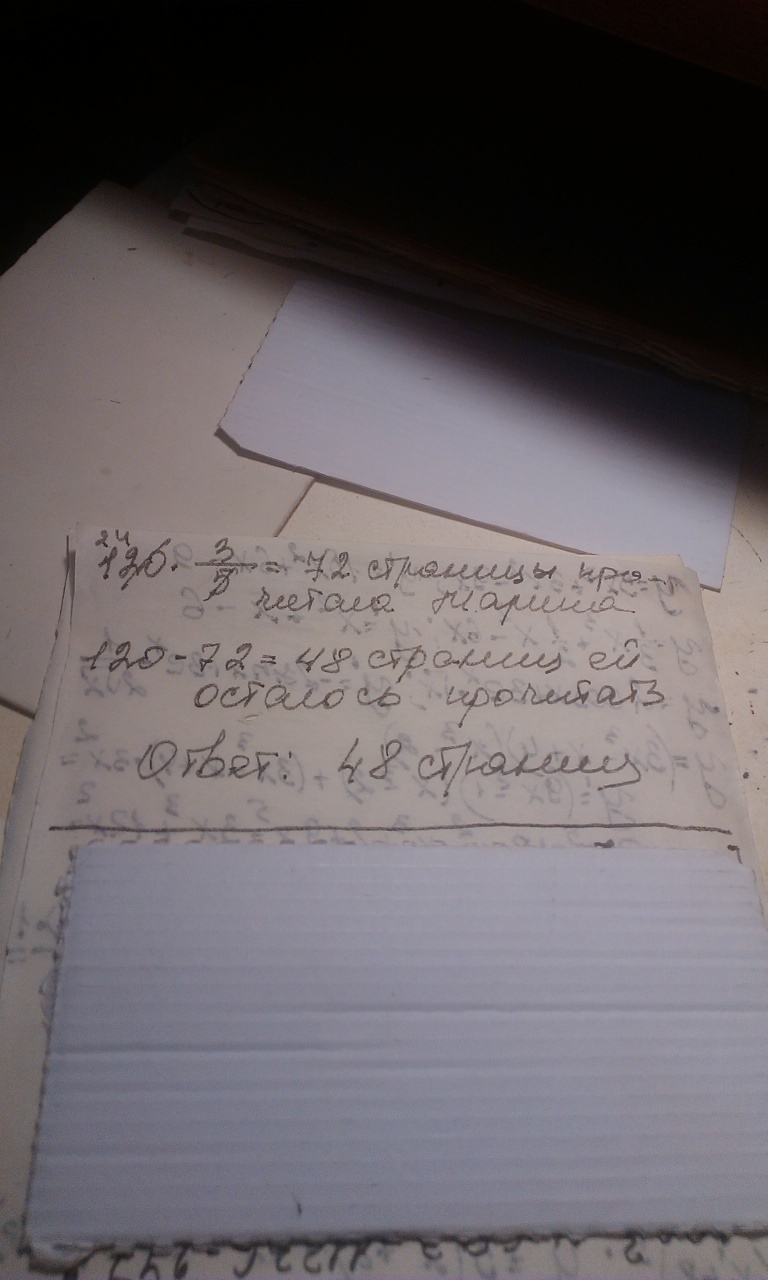 24
120 · 3/5 = 72 страницы про-
читала Марина
120 - 72 = 48 страниц ей
осталось прочитать
Ответ: 48 страниц